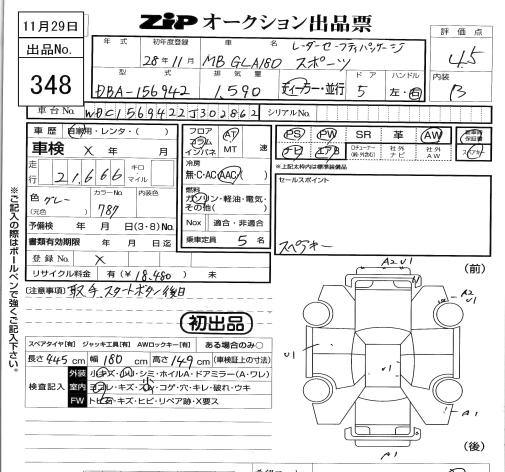 11月29日
ZiP オークション出品票
出品No.
348
年式
初年度登録
28年11月
車名
MB GLA180 レーダーセーフティパッケージ
スポーツ
評価点
4.5
型式
DBA-156942
排気量
1.590
ディーラー・並行
ドア
5
ハンドル
左・右
内装
B
車台No.
WDC1569422J302862
シリアルNo.
車歴
自家用・レンタ・( )
車検 X 年 月
走行
21,666
キロ
マイル
色
(元色)
グレー
カラーNo.
787
内装色
予備検 年 月 日(3・8)No.
書類有効期限 年 月 日迄
登録No.
X
リサイクル料金 有(¥18,480) 未
フロア
コラム
インパネ
AT
MT 速
冷房
無・C・AC・AAC
燃料
ガソリン・軽油・電気・
その他( )
Nox 適合・非適合
乗車定員 5 名
PS PW SR 革 AW
ナビ エアB
社外
ナビ
社外
AW
スペアキー
*上記太枠内は標準装備品
セールスポイント
スペアキー
(注意事項) 取手、スタートボタン後日
初出品
スペアタイヤ[有] ジャッキ工具[有] AWロックキー[有] ある場合のみ○
長さ 445 cm 幅 180 cm 高さ 149 cm (車検証上の寸法)
検査記入
外装 小キズ・凹・シミ・ホイルA・ドアミラー(A・ワレ)
室内 ヨゴレ・キズ・スレ・コゲ・穴・キレ・破れ・ウキ 小
FW トビ石・キズ・ヒビ・リペア跡・X要ス
(前)
A2 U1
A2
U1
U1
U1
A1
A1
(後)
※ご記入の際はボールペンで強くご記入下さい。